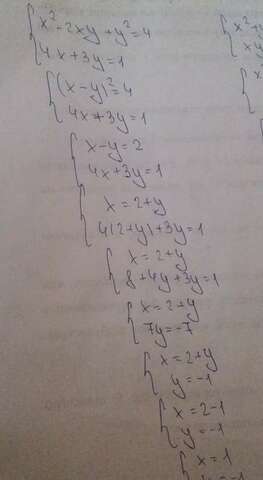 x² - 2xy + y² = 4
4x + 3y = 1
(x - y)² = 4
4x + 3y = 1
x - y = 2
4x + 3y = 1
x = 2 + y
4(2 + y) + 3y = 1
x = 2 + y
8 + 4y + 3y = 1
x = 2 + y
7y = -7
x = 2 + y
y = -1
x = 2 - 1
y = -1
x = 1